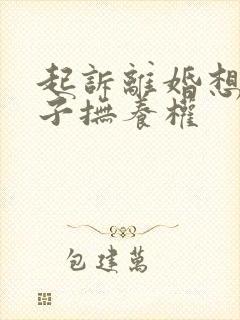 起訴離婚想
子撫養權
包建萬